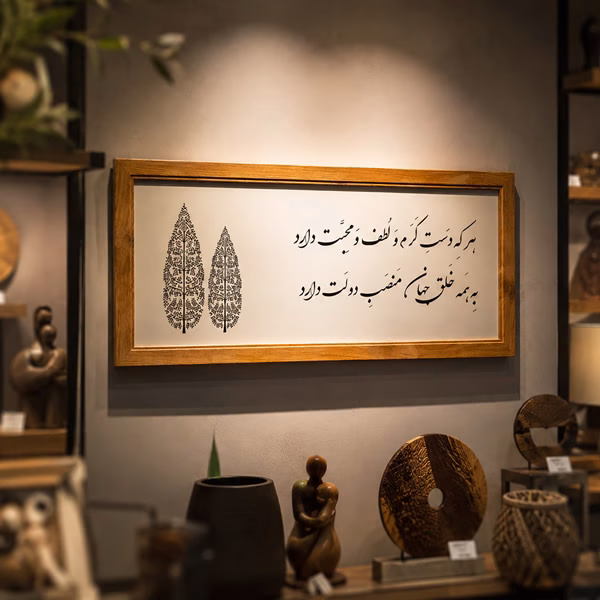 هر که دَستِ کَرَم و لُطف و محبَّت دارد
بِه هَمه خَلقِ جهان مَنصَبِ دولَت دارد